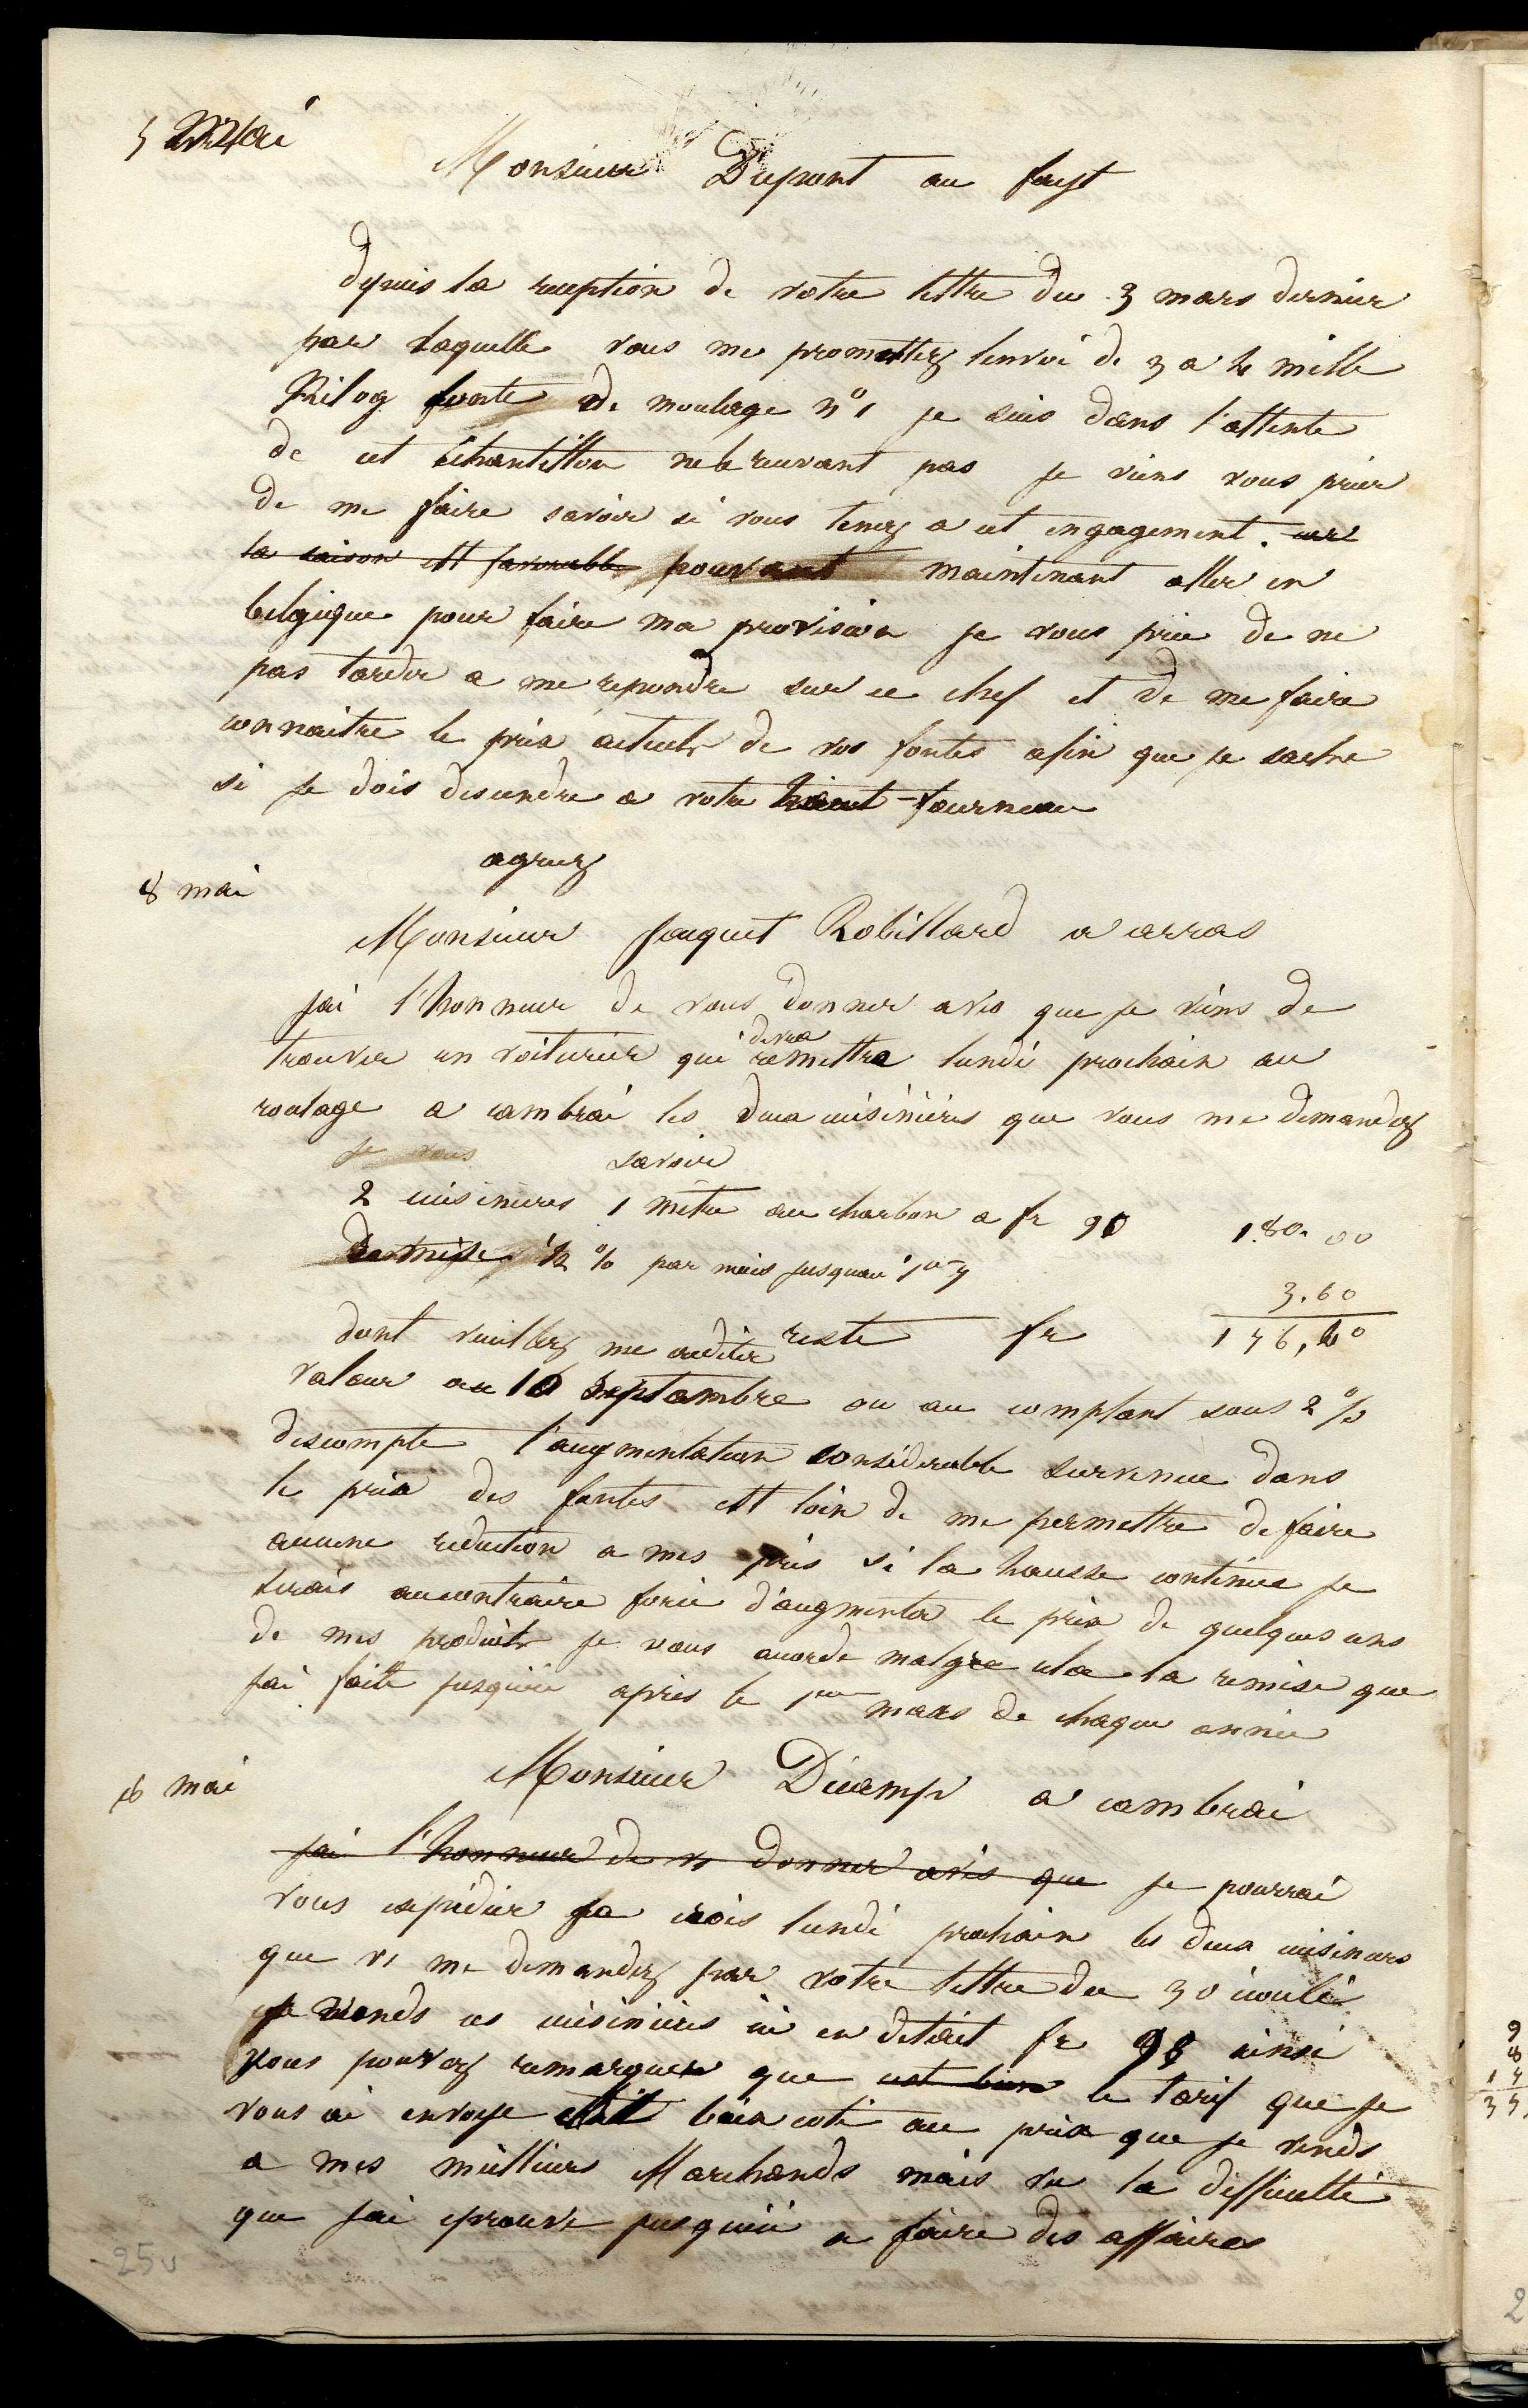 5 mai
Monsieur Dupont au fayt
depuis la reception de votre lettre du 3 mars dernier
par laquelle vous me promettez lenvoi de 3 a 4 mille
Kilog fonte de moulage n° 1 je suis dans l'attente
de cet échantillon ne le recevant pas je viens vous prier
de me faire savoir si vous tenez a cet engagement. car
la saison est favorable pouvant maintenant aller en
belgique pour faire ma provision je vous prie de ne
pas tarder a me repondre sur ce chef et de me faire
connaitre le prix actuels de vos fontes afin que je sache
si je dois descendre a votre haut-fourneau
agreez
8 mai
Monsieur Jacquet Robillard a arras
jai l'honneur de vous donner avis que je viens de
devra
trouver un voiturier qui remettra lundi prochain au
roulage a cambrai les deux cuisinières que vous me demandez
je vous savoir
2 cuisinieres 1 mètre au charbon a fr 90 180.00
1/2 % par mois jusquau
3.60
reste fr 176,40
dont veuillez me créditer
valeur au 10 septembre ou au comptant sous 2 %
descompte l'augmentation considerable survenue dans
le prix des fontes est loin de me permettre de faire
aucune reduction a mes prix si la hausse continue je
serais aucontraire forcé d'augmenter le prix de quelques uns
de mes produits je vous accorde malgre cela la remise que
jai faite jusquici apres le 1er mars de chaque année
8 mai
Monsieur Ducamp a cambrai
jai l'honneur de vs donner avis que je pourrai
vous expédier je crois lundi prochain les deux cuisineres
que vs me demandez par votre lettre du 30 écoulé
je vends ces cuisinieres ici en detail fr 98 ainsi
vous pouvez remarquer que cest bien le tarif que je
vous ai envoye etait bien coté au prix que je vends
a mes meilleurs Marchands mais vu la difficulté
que jai eprouvé jusquici a faire des affaires
25v